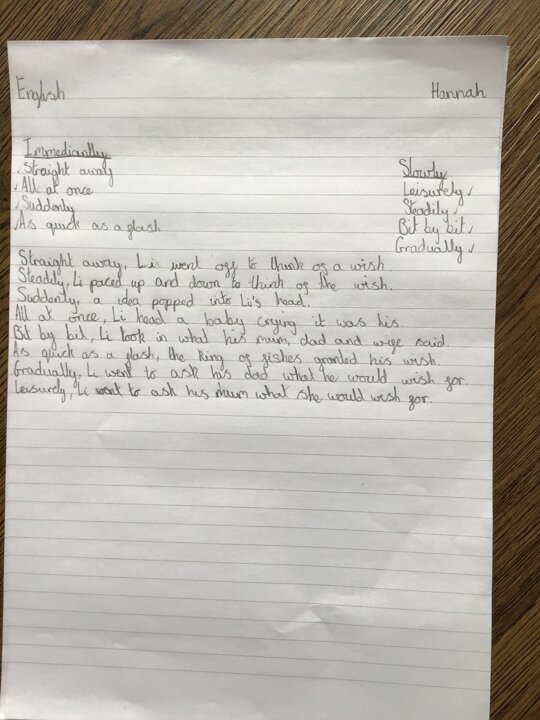 English
Hannah
Immediantly
Straight away
All at once
Suddenly
As quick as a flash
Slowly
Leisurely
Steadily
Bit by bit
Gradually
Straight away, Li went off to think of a wish.
Steadily, Li paced up and down to think of the wish.
Suddenly, a idea popped into Li's head.
All at once, Li head a baby crying it was his.
Bit by bit, Li took in what his mum, dad and wife said.
As quick as a flash, the king of fishes granted his wish.
Gradually, Li went to ask his dad what he would wish for.
Leisurely, Li went to ask his mum what she would wish for.